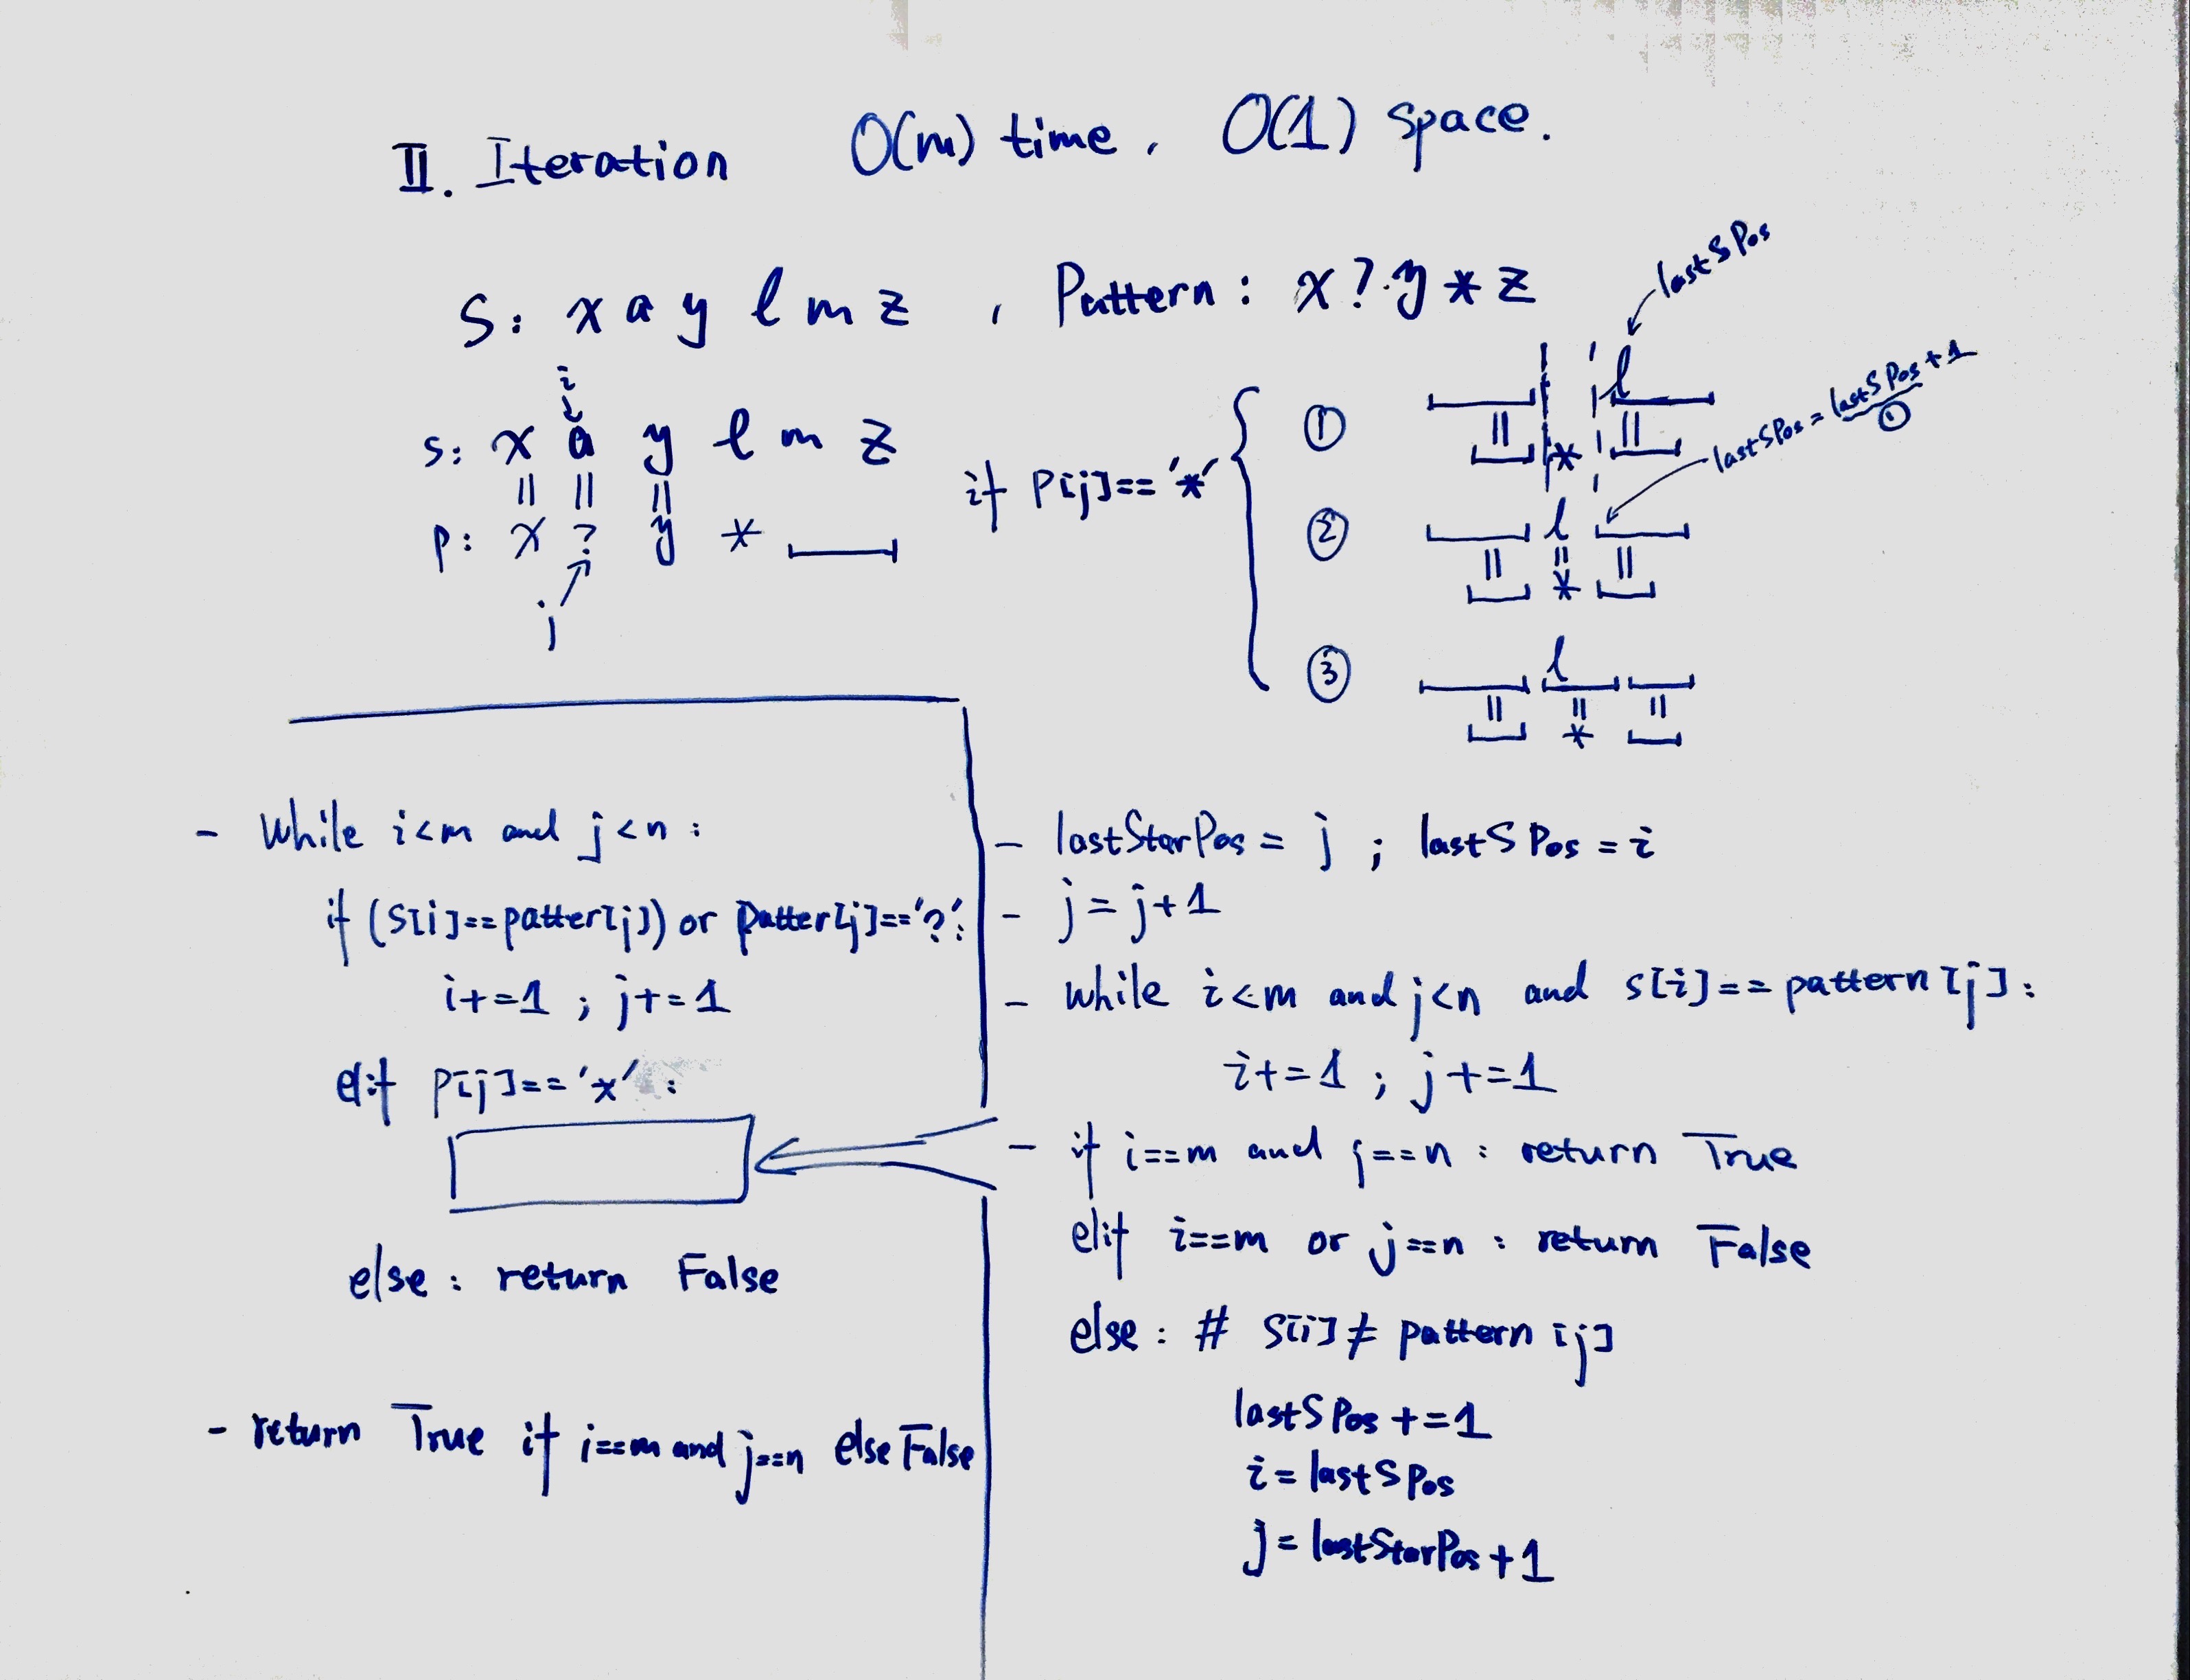 II. Iteration O(m) time, O(1) space.
S: x a y l m z , Pattern: x?y*z
i
s: x a y l m z
|| || ||
p: x ? y *
j
if P[j]=='*'
① l
|| * ||
lastSPos
② l
|| || * ||
lastSPos = lastSPos+1
①
③ l
|| || ||
*
- While i<m and j<n:
if (S[i]==patter[j]) or patter[j]=='?':
i+=1 ; j+=1
elif P[j]=='*' :
else: return False
- return True if i==m and j==n else False
- lastStarPos = j ; lastSPos = i
- j = j+1
- while i<m and j<n and s[i]==pattern[j]:
i+=1 ; j+=1
- if i==m and j==n : return True
elif i==m or j==n : return False
else: # S[i]≠pattern[j]
lastSPos+=1
i=lastSPos
j=lastStarPos+1